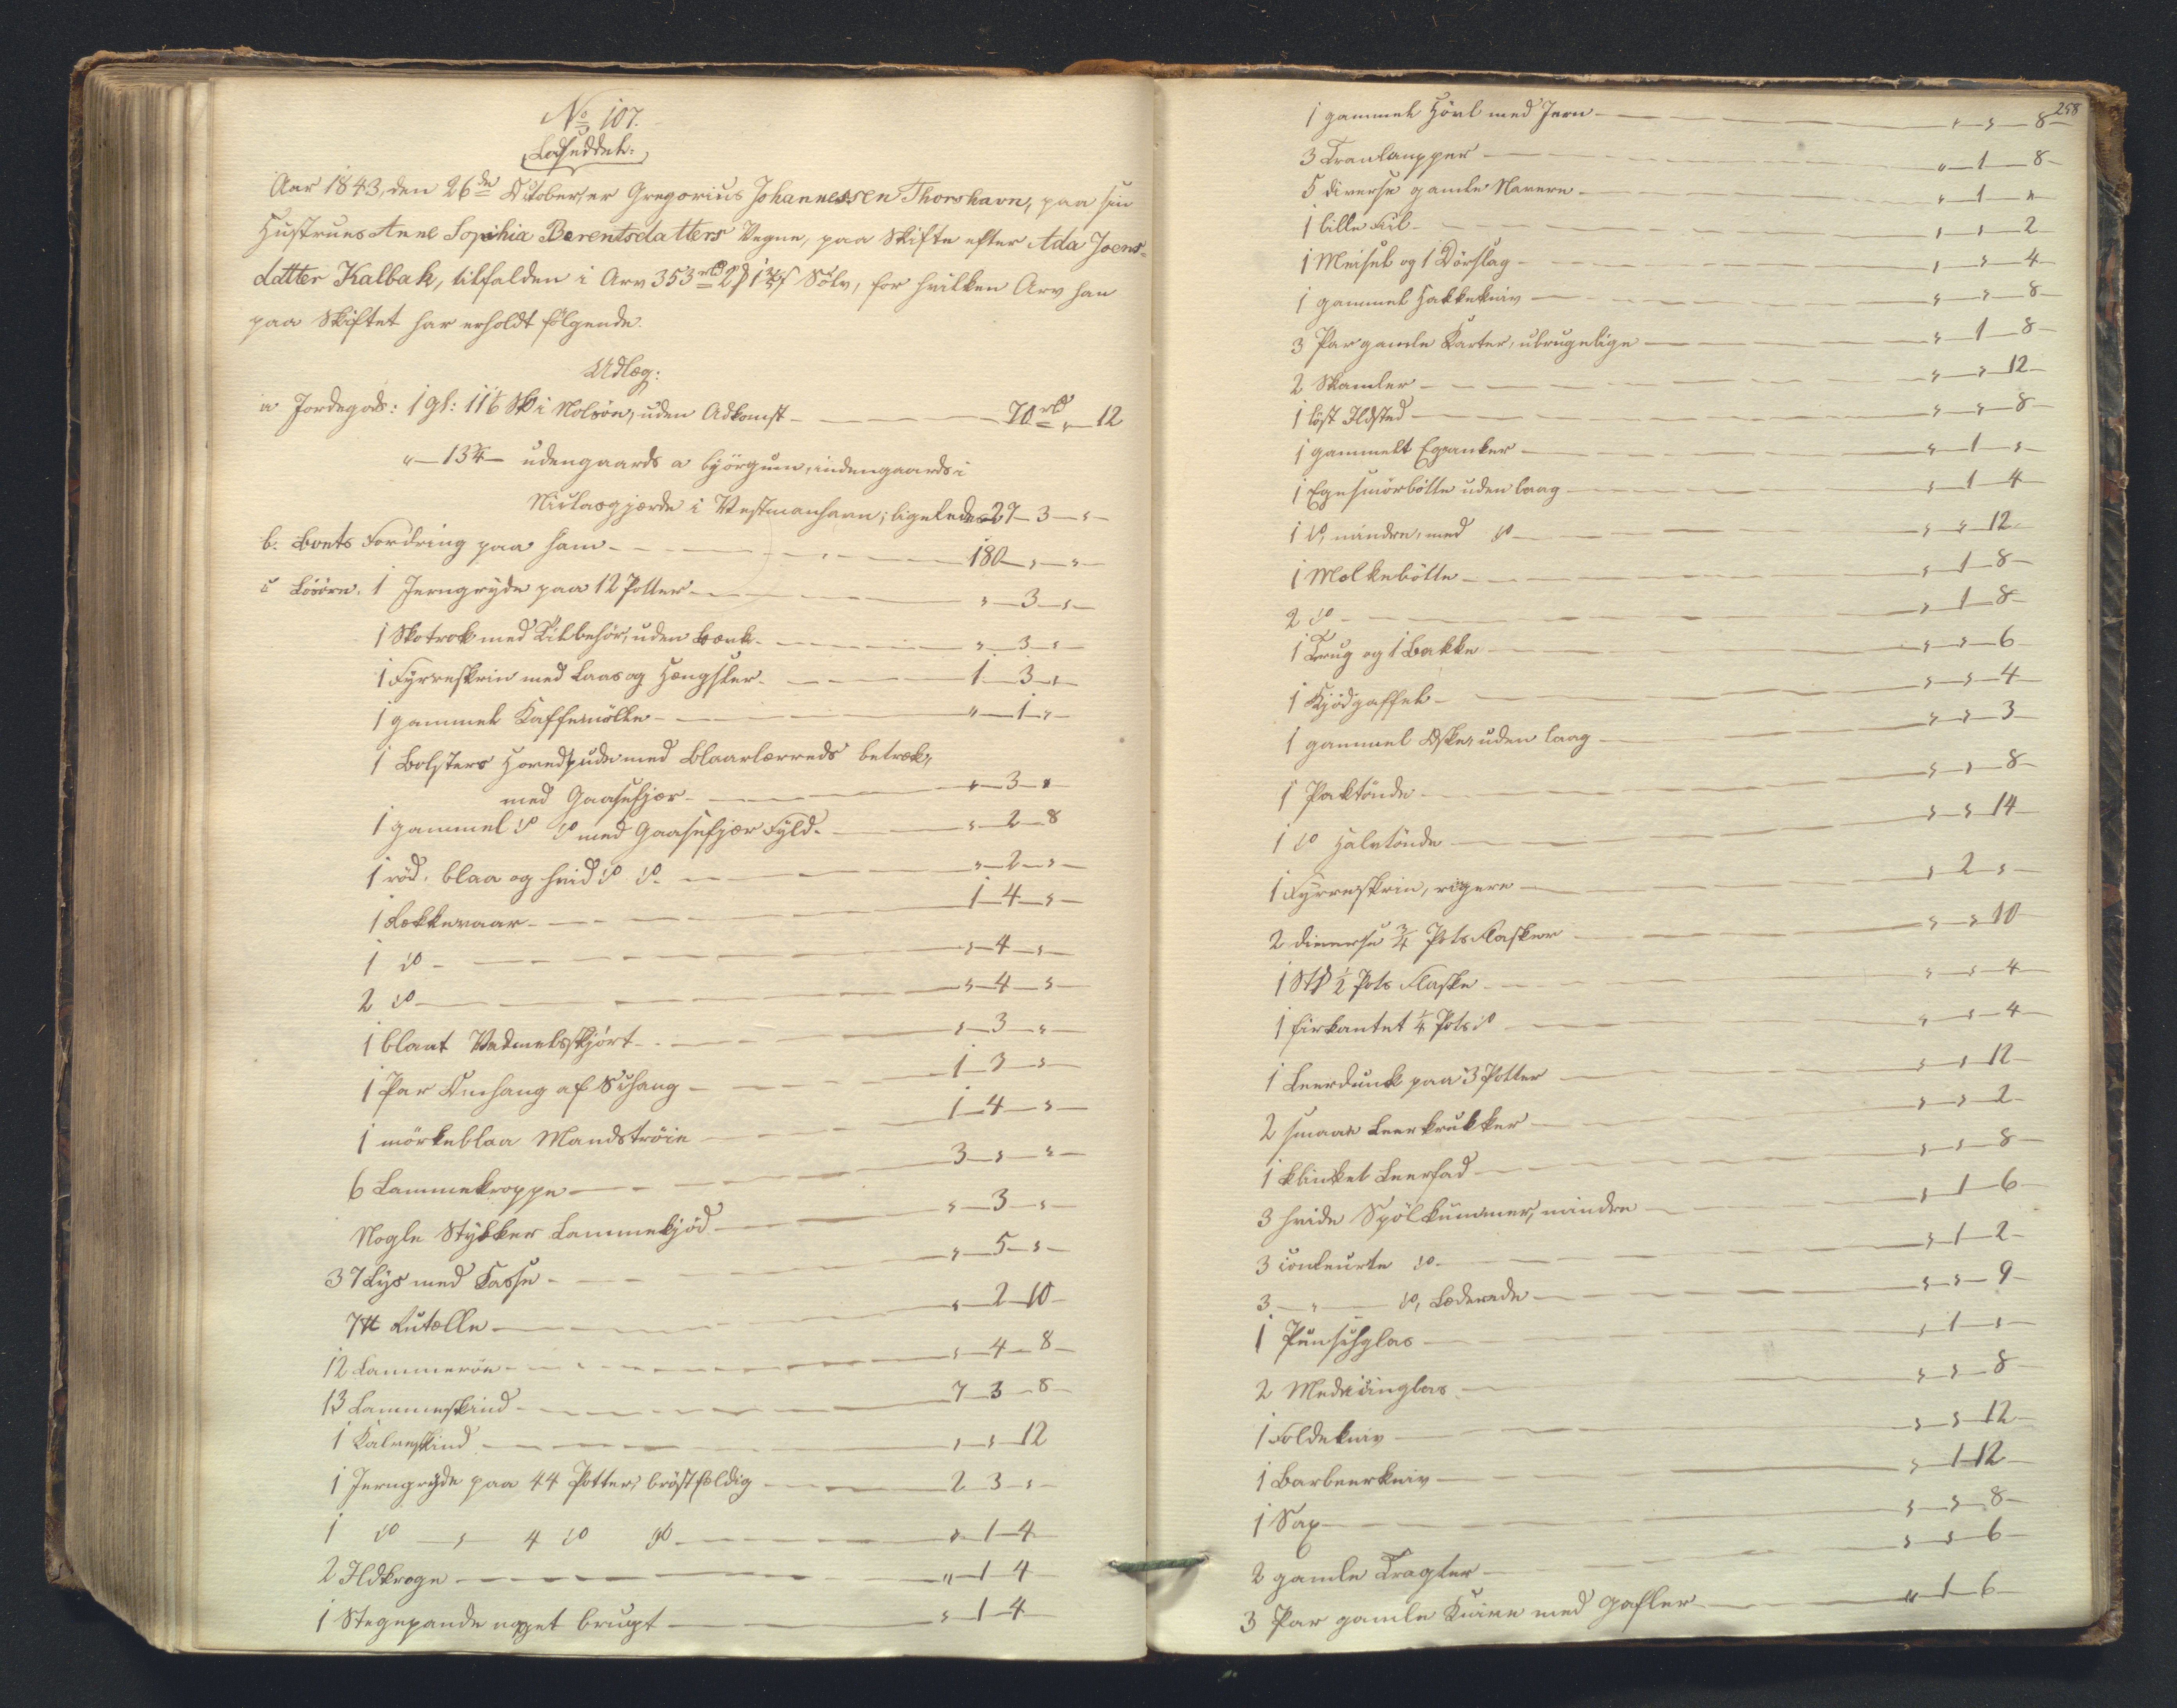 No 107.
Lodseddel:
Aar 1843, den 26de October, er Gregorius Johannessen Thorshavn, paa sin
Hustrues Anne Sophia Berentsdatters Vegne, paa Skifte efter Ada Joens-
datter Kalbak, tilfalden i Arv 353 rbd 2 Sølv, for hvilken Arv han
paa Skiftet har erholdt følgende
Udlæg:
a Jordegods: 1 gl: 11 1/6 Sk i Nolsøe, uden Adkomst — 70 rbd " 12
" — 13 3/4 — udengaards a bjørgum, indengaards i
Niclasgjærde i Vestmanhavn; ligeledes 27 — 3 — "
b. Boets Fordring paa ham — 180 — " — "
c Løsøre. 1 Jerngryde paa 12 Potter — " — 3 — "
1 Skotrok med Tilbehør, uden Bænk — " — 3 — "
1 Fyrreskrin med Laas og Hængsler — 1 — 3 — "
1 gammel Kaffemølle — " — 1 — "
1 Bolsters Hovedpude med Blaarlærreds betræk,
med Gaasefjær — " — 3 — "
1 gammel do do med Gaasefjær Fyld — " — 2 — 8
1 rød, blaa og hvid do do — " — 2 — "
1 Dækkenaar — 1 — 4 — "
1 do — " — 4 — "
2 do — " — 4 — "
1 blaat Vadmelsskjørt — " — 3 — "
1 Par Omhang af — 1 — 3 — "
1 mørkeblaa Mandstrøie — 1 — 4 — "
6 Lammekroppe — 3 — " — "
Nogle Stykker Lammekjød — " — 3 — "
37 Lys med Kasse — " — 5 — "
7 ℔ Rutælle — " — 2 — 10
12 — " — 4 — 8
13 Lammeskind — 7 — 3 — 8
1 Kalveskind — " — " — 12
1 Jerngryde paa 44 Potter, brøstfældig — 2 — 3 — "
1 do — " — 4 do do — " — 1 — 4
2 Ildkroge — " — 1 — 4
1 Stegepande noget brugt — " — 1 — 4
258
1 gammel Høvl med Jern — " — " — 8
3 Tranlamper — " — 1 — 8
5 diverse gamle Navere — " — 1 — "
1 lille Fiil — " — " — 2
1 Meisel og 1 Dørslag — " — " — 4
1 gammel Hakkekniv — " — " — 8
3 Par gamle Karter, ubrugelige — " — 1 — 8
2 Skamler — " — " — 12
1 løst Ildsted — " — " — 8
1 gammelt Egeanker — " — 1 — "
1 Egesmørbøtte uden laag — " — 1 — 4
1 do, mindre, med do — " — " — 12
1 Melkebøtte — " — 1 — 8
2 do — " — 1 — 8
1 Trug og 1 Bakke — " — " — 6
1 Kjødgaffel — " — " — 4
1 gammel Øske uden laag — " — " — 3
1 Paktønde — " — " — 8
1 do Halvtønde — " — " — 14
1 Fyrreskrin, ringere — " — 2 — "
2 diverse 3/4 Pots Flasker — " — " — 10
1 Stk 1/2 Pots Flaske — " — " — 4
1 firkantet 1/4 Pots do — " — " — 4
1 Leerdunk paa 3 Potter — " — " — 12
2 smaae Leerkrukker — " — " — 2
1 klinket Leerfad — " — " — 8
3 hvide Spølkummer, mindre — " — 1 — 6
3 couleurte do — " — 1 — 2
3 — " — do, — " — " — 9
1 Punschglas — " — 1 — "
2 Medicinglas — " — " — 8
1 Foldekniv — " — " — 12
1 Barbeerkniv — " — 1 — 12
1 Sax — " — " — 8
2 gamle Tragter — " — " — 6
3 Par gamle Knive med Gafler — " — 1 — 6